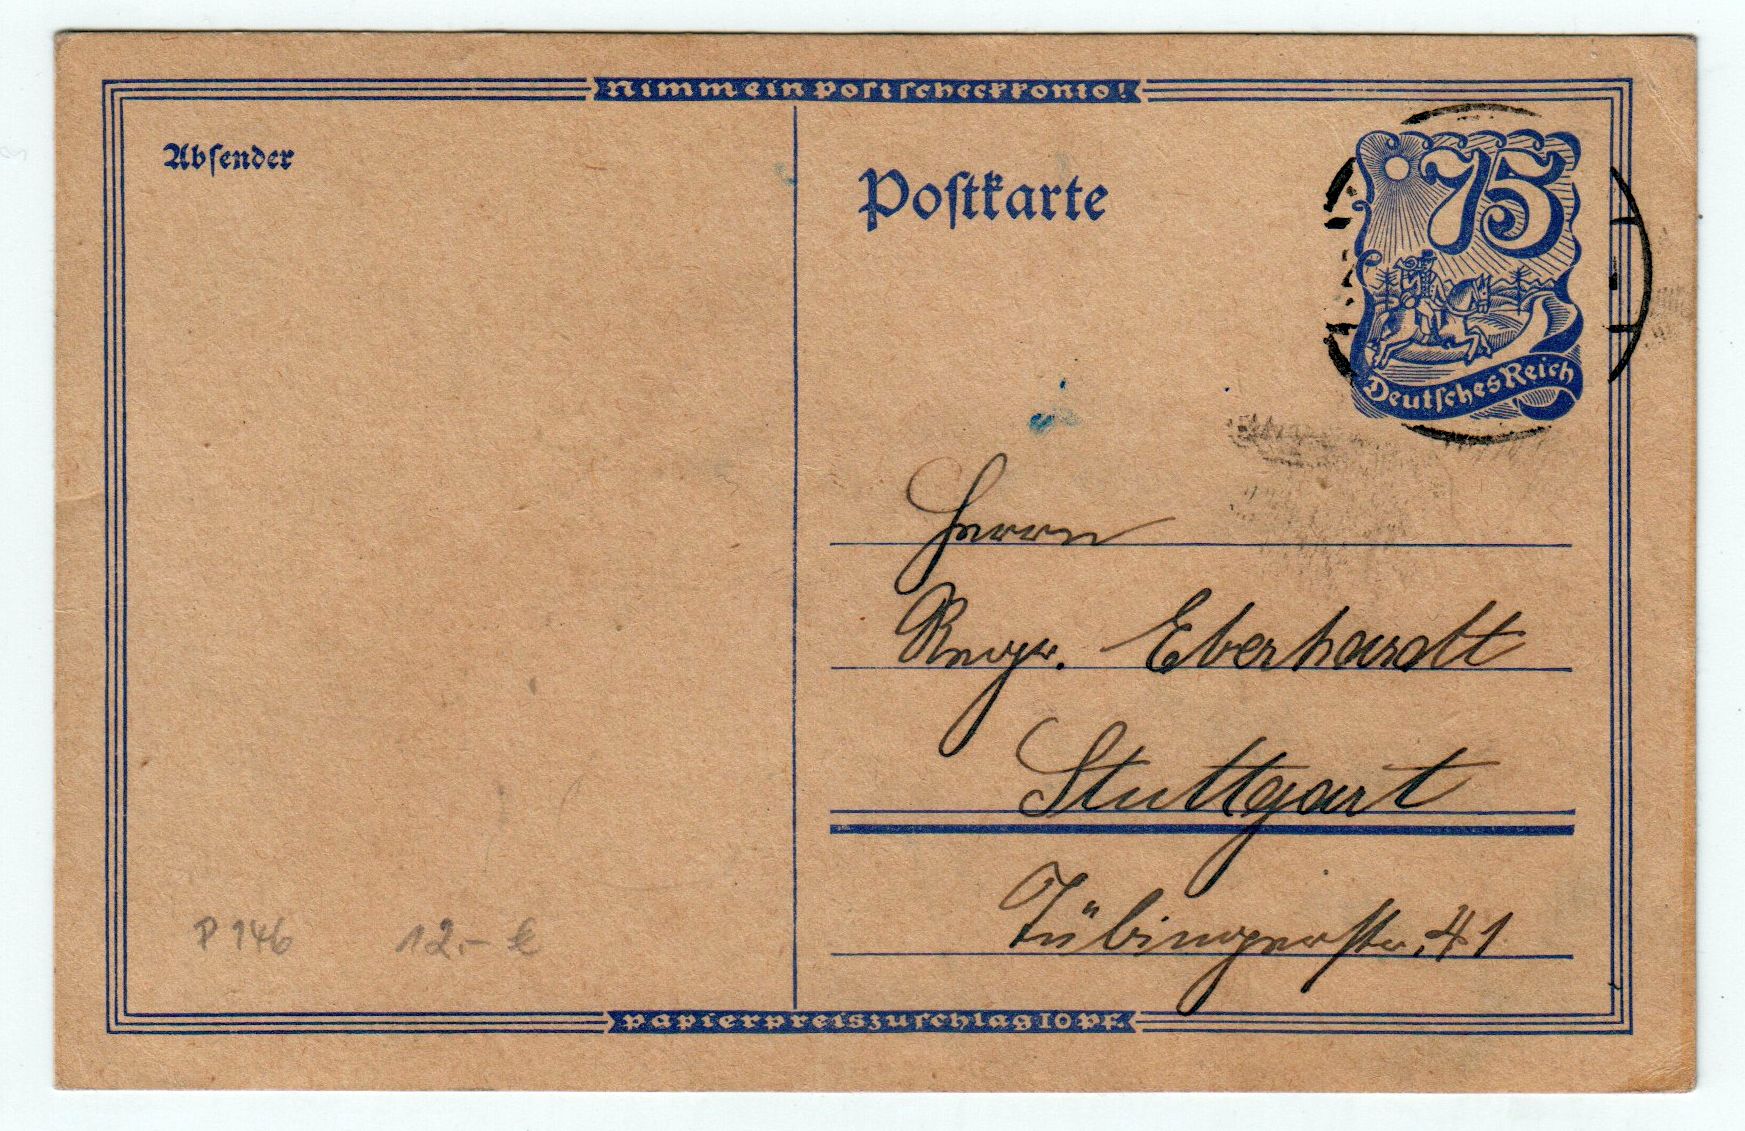 Nimm ein Postscheckkonto!
Absender
Postkarte
75
Deutsches Reich
Herrn
Eberhardt
Stuttgart
Tübingerstr. 41
P 146
12.- €
Papierpreiszuschlag 10 Pf.